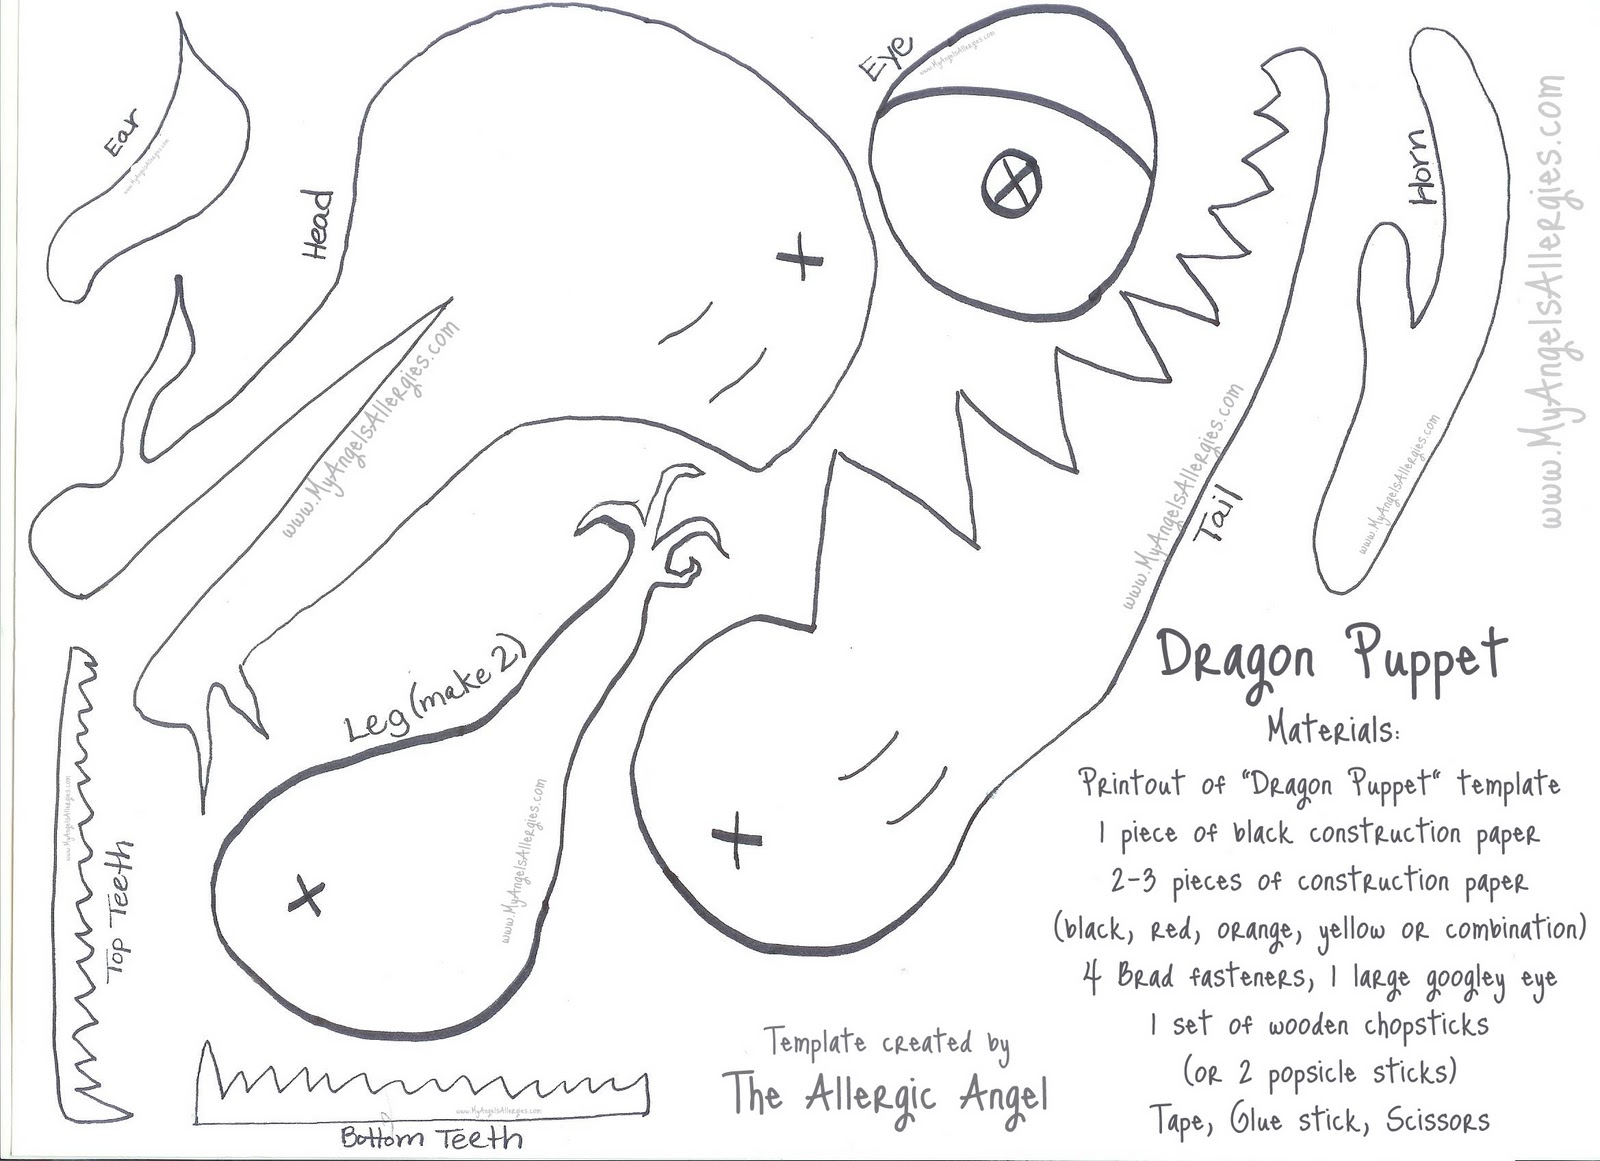 Ear
www.MyAngelsAllergies.com
Head
www.MyAngelsAllergies.com
Eye
www.MyAngelsAllergies.com
Horn
www.MyAngelsAllergies.com
www.MyAngelsAllergies.com
Tail
www.MyAngelsAllergies.com
Leg (make 2)
www.MyAngelsAllergies.com
Top Teeth
www.MyAngelsAllergies.com
Bottom Teeth
www.MyAngelsAllergies.com
Template created by
The Allergic Angel
Dragon Puppet
Materials:
Printout of "Dragon Puppet" template
1 piece of black construction paper
2-3 pieces of construction paper
(black, red, orange, yellow or combination)
4 Brad fasteners, 1 large googley eye
1 set of wooden chopsticks
(or 2 popsicle sticks)
Tape, Glue stick, Scissors